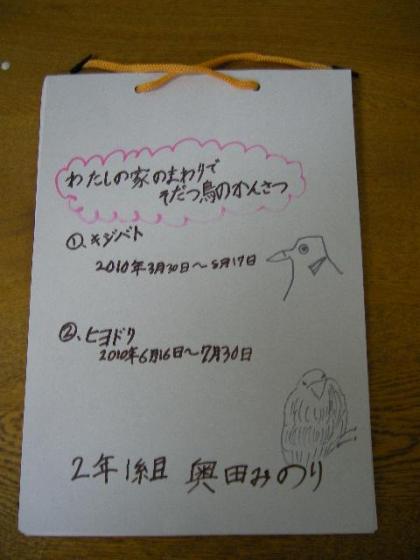 わたしの家のまわりで
そだつ鳥のかんさつ
①、キジバト
2010年3月30日～5月17日
②、ヒヨドリ
2010年6月16日～7月30日
2年1組 奥田みのり